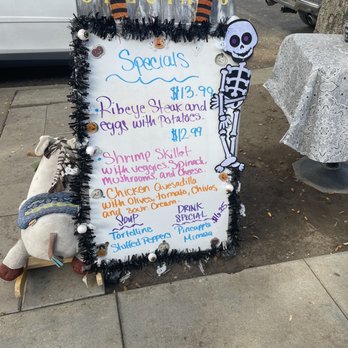 Specials
$13.99
Ribeye Steak and
eggs with potatoes.
$12.99
Shrimp Skillet
with veggies, Spinack,
mushrooms, and Cheese.
Chicken Quesadilla
with Olives, tomato, Chives,
and Sour Cream.
Soup
Tortelline
Stuffed Peppers
DRINK
SPECIAL
Pineapple
Mimosa